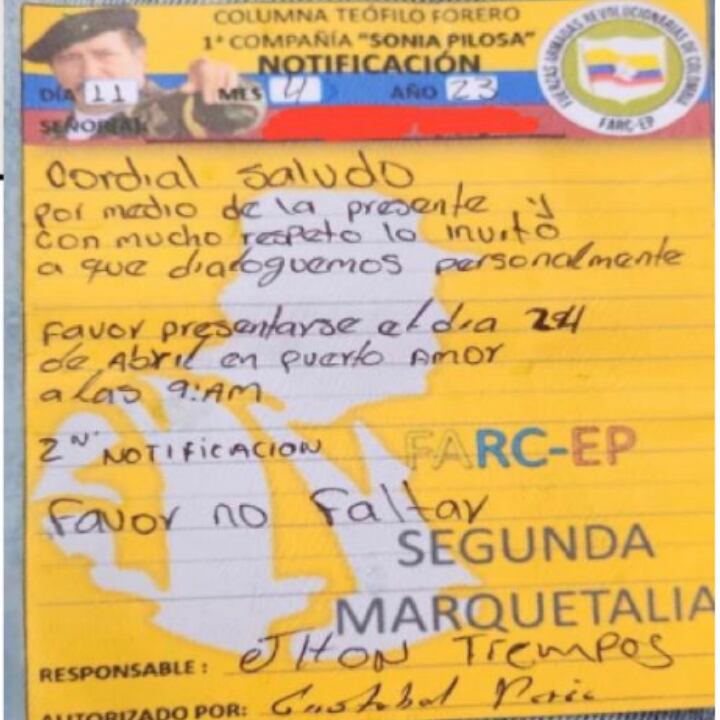 COLUMNA TEÓFILO FORERO
1ª COMPAÑÍA "SONIA PILOSA"
NOTIFICACIÓN
DÍA 11 MES 4 AÑO 23
SEÑOR(A):
FUERZAS ARMADAS REVOLUCIONARIAS DE COLOMBIA
FARC-EP
Cordial saludo
por medio de la presente y
con mucho respeto lo invito
a que dialoguemos personalmente
Favor presentarse el dia 24
de Abril en puerto AMOR
a las 9:AM
2ᴺ NOTIFICACION
FARC-EP
Favor no Faltar
SEGUNDA
MARQUETALIA
RESPONSABLE: JHON Tiempos
AUTORIZADO POR: